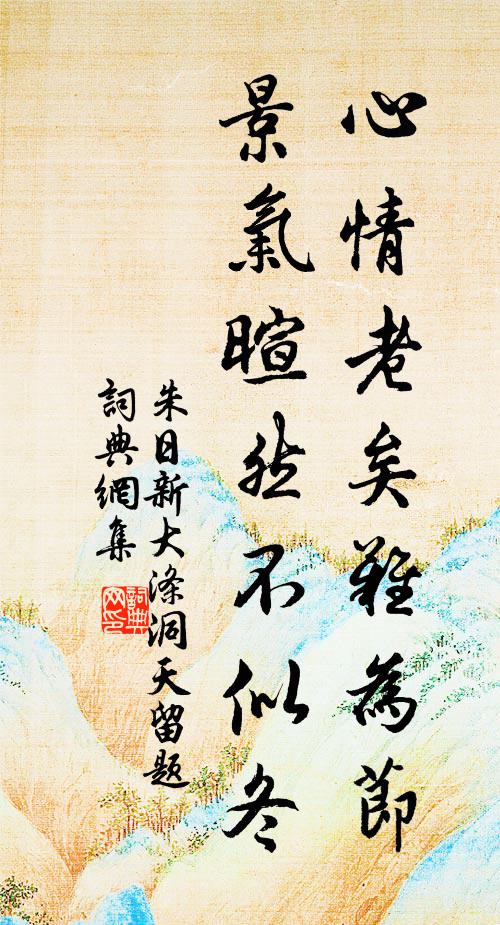 心情老矣難為節
景氣暄然不似冬
朱日新大滌洞天留題
詞典網集
詞典网印